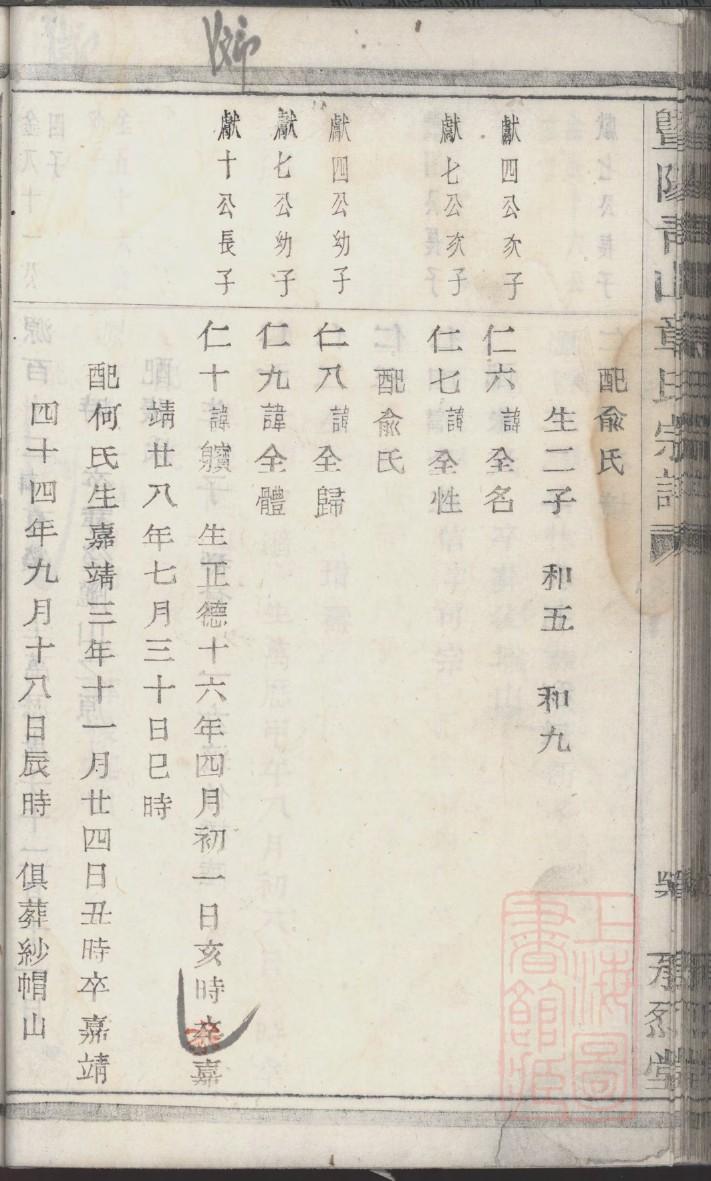 暨陽青山章氏宗譜
承烈堂
配俞氏
生二子 和五 和九
獻四公次子
仁六諱全名
獻七公次子
仁七諱全性
配俞氏
獻四公幼子
仁八諱全歸
獻七公幼子
仁九諱全體
獻十公長子
仁十諱鑌 生正德十六年四月初一日亥時卒嘉
靖廿八年七月三十日巳時
配何氏生嘉靖三年十一月廿四日丑時卒嘉靖
四十四年九月十八日辰時 俱葬紗帽山
上海圖
書館藏